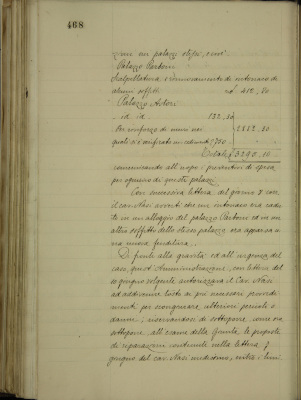 468
zioni nei palazzi stessi, cioè:
Palazzo Carboni
Scalpellatura e rinnovamento di intonaco di
alcuni soffitti 212,80
Palazzo Astori
id id 132,50
Per rinforzo di muri nei
quali si è verificato un
Totale £ 3290,10
comunicando all'uopo i preventivi di spesa
per ognuno di questi palazzi.
Con successiva lettera del giorno 8 corr.
il cav. Nasi avvertì che un intonaco era cadu-
to in un alloggio del palazzo Carboni ed in un
altro soffitto dello stesso palazzo era apparsa u-
na nuova fenditura.
Di fronte alla gravità ed all'urgenza del
caso, quest'Amministrazione, con lettera del
10 giugno volgente autorizzava il Cav. Nasi
ad addivenire tosto ai più necessari provvedi-
menti per scongiurare ulteriori pericoli e
danni; riservandosi di sottoporre, come ora
sottopone all'esame della Giunta, le proposte
di riparazioni contenute nella lettera 7
giugno del cav. Nasi medesimo, entro i limi-